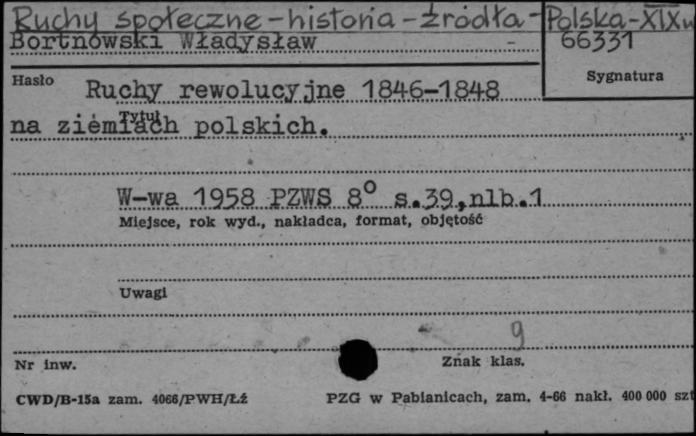 Ruchy społeczne-historia-źródła-Polska-XIXw
Bortnowski Władysław
66331
Sygnatura
Hasło
Ruchy rewolucyjne 1846-1848
Tytuł
na ziemiach polskich.
W-wa 1958 PZWS 8° s.39,nlb.1
Miejsce, rok wyd., nakładca, format, objętość
Uwagi
9
Nr inw.
Znak klas.
CWD/B-15a zam. 4066/PWH/Łź
PZG w Pabianicach, zam. 4-66 nakł. 400 000 szt